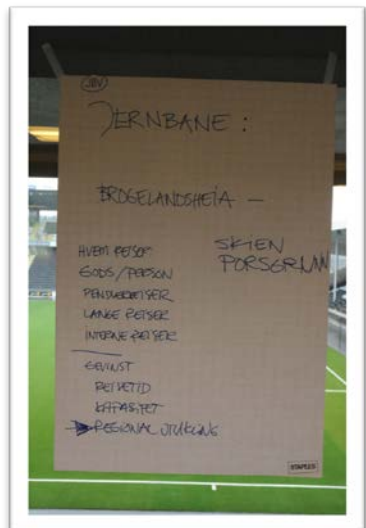 JBV
JERNBANE :
BROGELANDSHEIA —
SKIEN
PORSGRUNN
HVEM REISER
GODS/PERSON
PENDLERREISER
LANGE REISER
INTERNE REISER
GEVINST
REISETID
KAPASITET
REGIONAL UTVIKLING
STAPLES